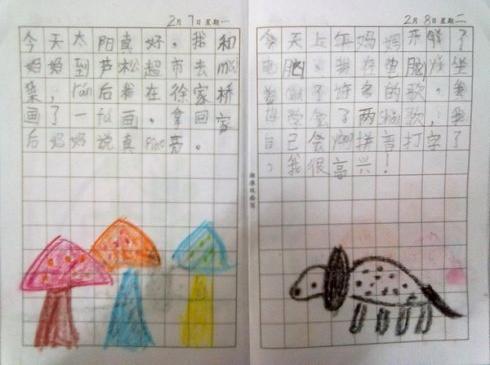 2月7日星期一
今天太阳真好。我和
妈妈到芦松超市去mǎi
菜，rán后我在徐家桥
画了一fú画。拿回家
后妈妈说真piào亮。
2月8日星期二
今天上午妈妈开啦了
电脑。我在电脑
的歌。我
了两，我
自己会用拼音打字了
，我很高兴！